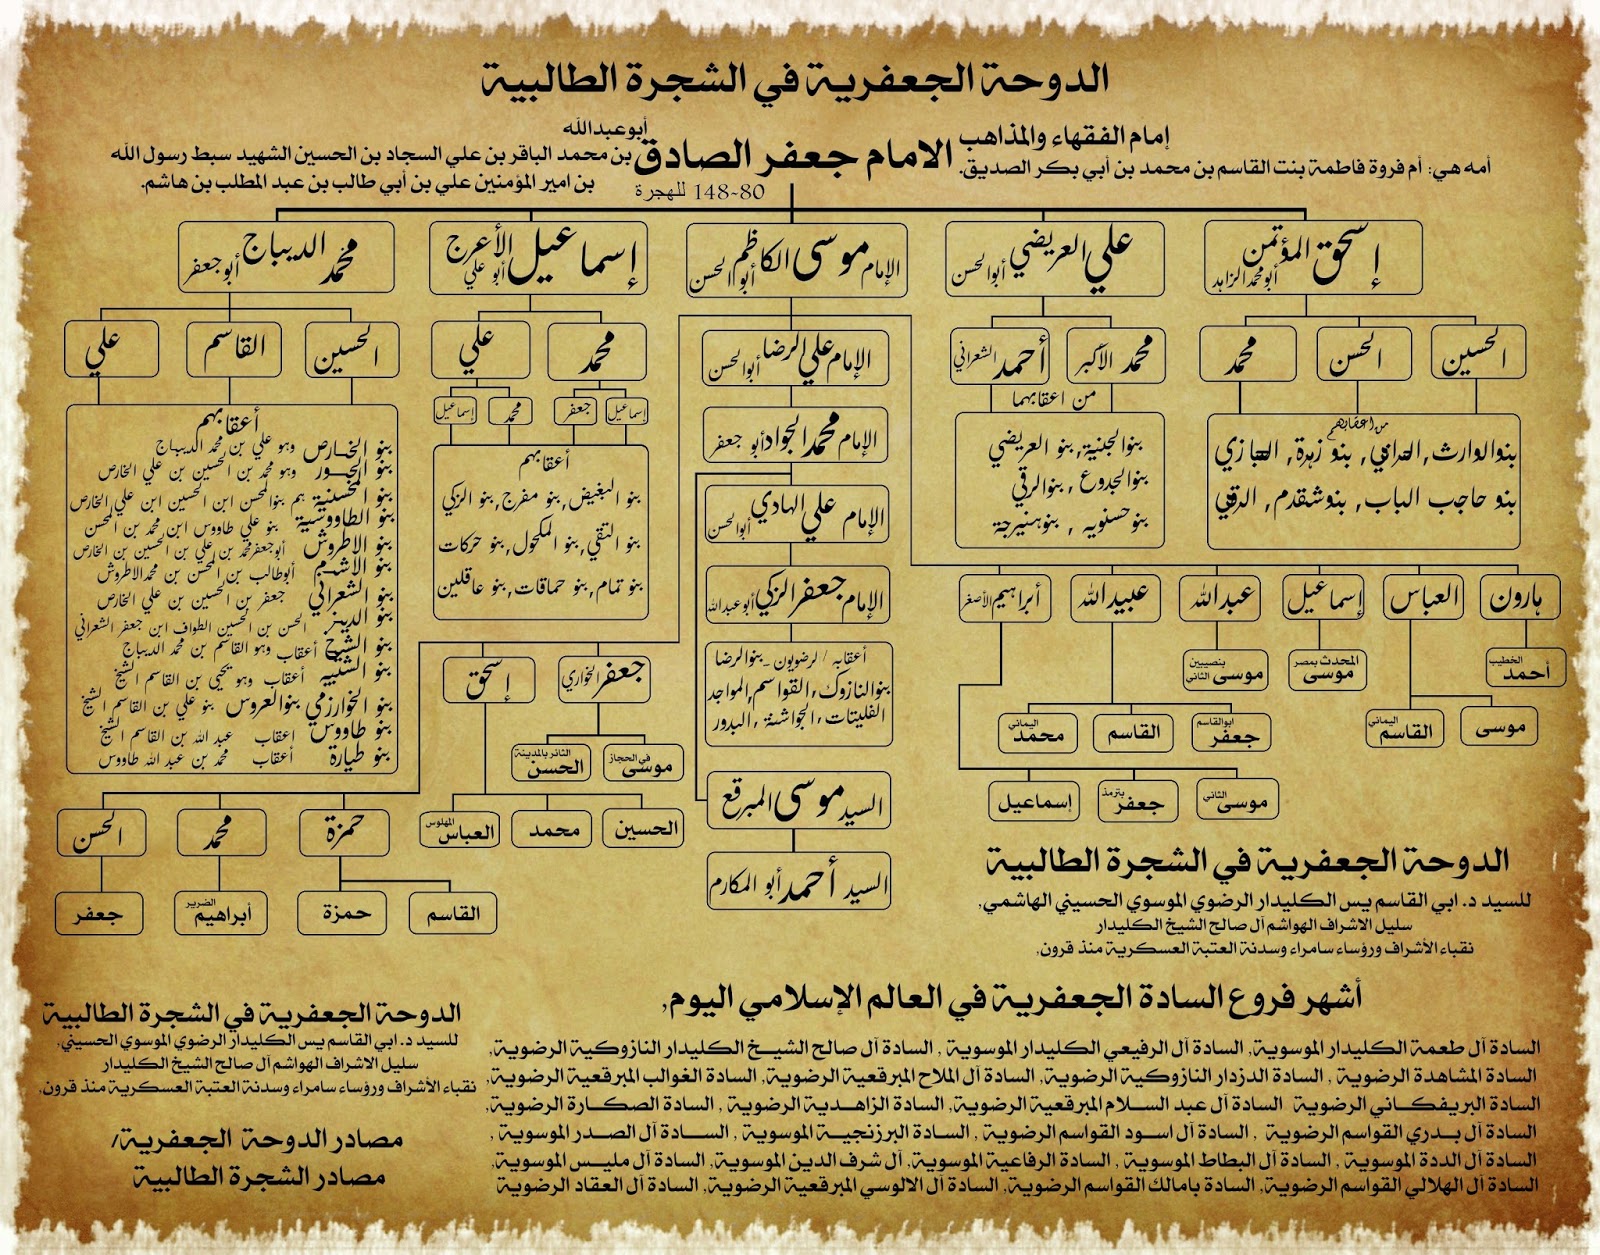 الدوحة الجعفرية في الشجرة الطالبية
إمام الفقهاء والمذاهب
أمه هي: أم فروة فاطمة بنت القاسم بن محمد بن أبي بكر الصديق.
الامام جعفر الصادق
أبو عبدالله
بن محمد الباقر بن علي السجاد بن الحسين الشهيد سبط رسول الله
بن امير المؤمنين علي بن أبي طالب بن عبد المطلب بن هاشم.
80-148 للهجرة
إسحق المؤتمن
أبو محمد الزاهد
علي العريضي
أبو الحسن
الإمام موسى الكاظم
أبو الحسن
إسماعيل الأعرج
أبو علي
محمد الديباج
أبو جعفر
الحسين
الحسن
محمد
محمد الأكبر
أحمد الشعراني
الإمام علي الرضا
أبو الحسن
محمد
علي
الحسين
القاسم
علي
من اعقابهم
بنو الوارث,
بنو زهرة,
بنو حاجب الباب, بنو شقدم, الرقي
من اعقابهما
بنو الجنية, بنو العريضي
بنو الجدوع, بنو الرقي
بنو حسنويه,
الإمام محمد الجواد أبو جعفر
الإمام علي الهادي
أبو الحسن
الإمام جعفر الزكي
أبو عبدالله
أعقابه / لرضويون - بنو الرضا
بنو النازوك, القواسم, المواجد
الفليتات, الجواشنة, البدور
السيد موسى المبرقع
السيد أحمد أبو المكارم
إسماعيل
جعفر
محمد
إسماعيل
أعقابهم
بنو البغيض, بنو مفرج, بنو الزكي
بنو التقي, بنو المكحول, بنو حركات
بنو تمام, بنو حماقات, بنو عاقلين
أعقابهم
بنو الخارص وهو علي بن محمد الديباج
بنو الجور وهو محمد بن الحسين بن علي الخارص
بنو المحسنية هم بنو المحسن ابن الحسين ابن علي الخارص
بنو الطاووسية بنو علي طاووس ابن محمد بن المحسن
بنو الاطروش أبو جعفر محمد بن علي بن الحسين بن الخارص
أبو طالب بن المحسن بن محمد الاطروش
بنو الشعراني جعفر بن الحسين بن علي الخارص
الحسن بن الحسين الطواف ابن جعفر الشعراني
بنو الشيخ أعقاب وهو القاسم بن محمد الديباج
بنو الشبيه أعقاب وهو يحيى بن القاسم الشيخ
بنو الخوارزمي بنو العروس بنو علي بن القاسم الشيخ
بنو طاووس اعقاب عبد الله بن القاسم الشيخ
بنو طيارة أعقاب محمد بن عبد الله طاووس
هارون
العباس
إسماعيل
عبدالله
عبيدالله
أبراهيم الأصغر
الخطيب
أحمد
المحدث بمصر
موسى
بنصيبين
موسى الثاني
موسى
القاسم اليماني
أبو القاسم
جعفر
القاسم
اليماني
محمد
موسى الثاني
جعفر بترمذ
إسماعيل
جعفر الخواري
إسحق
في الحجاز
موسى
الثائر بالمدينة
الحسن
الحسين
محمد
العباس المهلوس
حمزة
محمد
الحسن
القاسم
حمزة
الضرير
أبراهيم
جعفر
الدوحة الجعفرية في الشجرة الطالبية
للسيد د. ابي القاسم يس الكليدار الرضوي الموسوي الحسيني الهاشمي,
سليل الاشراف الهواشم آل صالح الشيخ الكليدار
نقباء الأشراف ورؤساء سامراء وسدنة العتبة العسكرية منذ قرون,
أشهر فروع السادة الجعفرية في العالم الإسلامي اليوم,
السادة آل طعمة الكليدار الموسوية, السادة آل الرفيعي الكليدار الموسوية , السادة آل صالح الشيخ الكليدار النازوكية الرضوية,
السادة المشاهدة الرضوية , السادة الدزدار النازوكية الرضوية, السادة آل الملاح المبرقعية الرضوية, السادة الغوالب المبرقعية الرضوية,
السادة البريفكاني الرضوية السادة آل عبد السلام المبرقعية الرضوية, السادة الزاهدية الرضوية , السادة الصكارة الرضوية,
السادة آل بدري القواسم الرضوية , السادة آل اسود القواسم الرضوية , السادة البرزنجية الموسوية , السادة آل الصدر الموسوية ,
السادة آل الددة الموسوية , السادة آل البطاط الموسوية , السادة الرفاعية الموسوية, آل شرف الدين الموسوية, السادة آل مليس الموسوية,
السادة آل الهلالي القواسم الرضوية, السادة بامالك القواسم الرضوية, السادة آل الالوسي المبرقعية الرضوية, السادة آل العقاد الرضوية
الدوحة الجعفرية في الشجرة الطالبية
للسيد د. ابي القاسم يس الكليدار الرضوي الموسوي الحسيني,
سليل الاشراف الهواشم آل صالح الشيخ الكليدار
نقباء الأشراف ورؤساء سامراء وسدنة العتبة العسكرية منذ قرون,
مصادر الدوحة الجعفرية/
مصادر الشجرة الطالبية